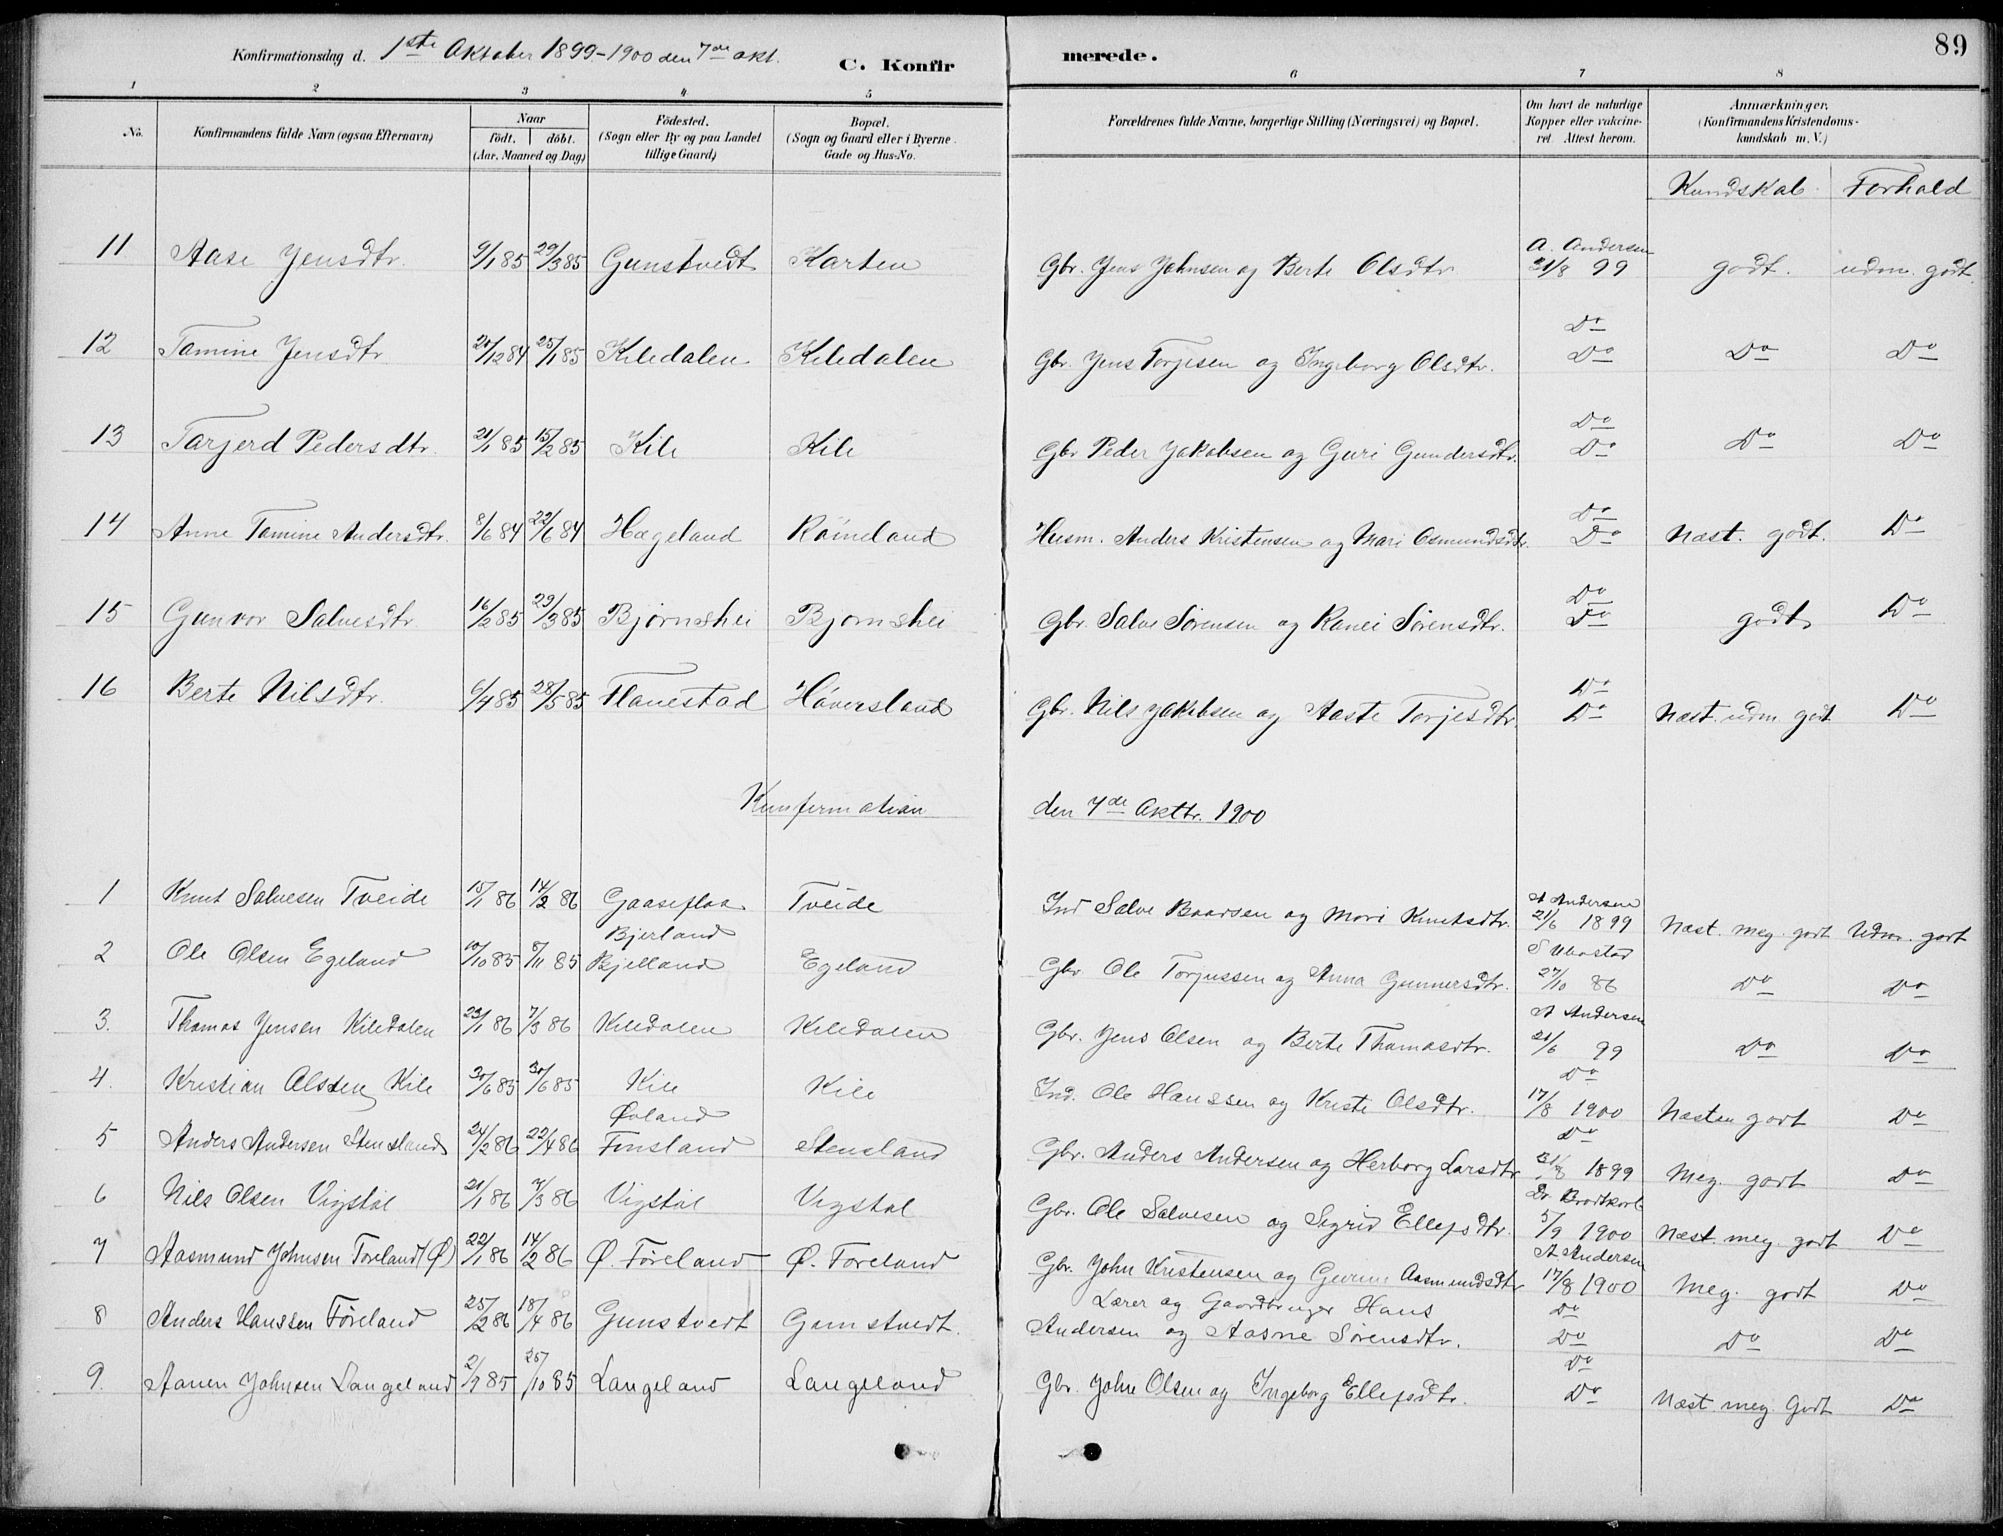 89
Konfirmationsdag d. 1ste Oktober 1899-1900 den 7de okt. C. Konfir merede.
1 2 3 4 5 6 7 8
No. Konfirmandens fulde Navn (ogsaa Efternavn) Naar født. døbt. (Aar, Maaned og Dag) Fødested. (Sogn eller By og paa Landet tillige Gaard) Bopæl. (Sogn og Gaard eller i Byerne Gade og Hus-No. Forældrenes fulde Navne, borgerlige Stilling (Næringsvei) og Bopæl. Om havt de naturlige Kopper eller vakcineret. Attest herom. Anmærkninger. (Konfirmandens Kristendomskundskab m. V.)
Kundskab. Forhold
11 Aase Jensdtr. 9/1 85 29/3 85 Gunstvedt Karten Gbr. Jens Johnsen og Berte Olsdtr. A. Andersen 31/8 99 godt. udm. godt.
12 Tamine Jensdtr 20/12 84 25/1 85 Kiledalen Kiledalen Gbr. Jens Torjesen og Ingeborg Olsdtr. Do Do Do Do
13 Tarjerd Pedersdtr. 21/1 85 15/2 85 Kile Kile Gbr Peder Jakobsen og Guri Gundersdtr. Do Do Do Do
14 Anne Tamine Andersdtr. 8/6 84 22/6 84 Hægeland Rømeland Husm. Anders Kristensen og Mari Osmundsdtr. Do Do Næst. godt. Do
15 Gunvor Salvesdtr 16/2 85 29/3 85 Bjørnshei Bjornshei Gbr. Salve Sørensen og Ranei Sørensdtr. Do Do godt Do
16 Berte Nilsdtr. 6/4 85 28/5 85 Flanestad Høversland Gbr. Nils Jakobsen og Aaste Torjesdtr. Do Do Næst. udm. godt Do
Kunfirmation den 7de Oktbr. 1900
1 Knut Salvesen Tveide 15/1 86 14/2 86 Gaaseflaa Tveide Ind Salve Baardsen og Mari Knutsdtr. A Andersen 21/6 1899 Næst. meg. godt Udm. godt
2 Ole Olsen Egeland 10/10 85 8/11 85 Bjerland Bjelland Egeland Gbr Ole Torjussen og Anna Gunnersdtr. 27/10 86 Do Do
3. Thomas Jensen Kiledalen 23/1 86 7/3 86 Kiledalen Kiledalen Gbr. Jens Olsen og Berte Thomasdtr. A Andersen 21/6 99 Do Do
4. Kristian Olsen Kile 30/6 85 Kile Kile Ind. Ole Hanssen og Kriste Olsdtr. Do 17/8 1900 Næsten godt Do
5 Anders Andersen Stensland 24/2 86 22/4 86 Øvland Finsland Stensland Gbr. Anders Andersen og Herborg Larsdtr Do 31/8 1899 Meg. godt Do
6 Nils Olsen Vigstøl 21/1 86 7/3 86 Vigstøl Vigstøl Gbr. Ole Salvesen og Sigrid Ellefsdtr. Dr. Brodtkorb 5/9 1900 Næst. meg. godt Do
7 Aasmund Johnsen Foreland (Ø) 22/1 86 14/2 86 Ø. Føreland Ø. Foreland Gbr. John Kristensen og Gurine Aasmundsdtr A Andersen 17/8 1900 Meg. godt Do
8 Anders Hanssen Føreland 25/2 86 18/4 86 Gunstvedt Gunstvedt. Lærer og Gaardbruger Hans Andersen og Aasne Sørensdtr. Do Do Do Do
9. Aanen Johnsen Langeland 2/9 85 25/10 85 Langeland Langeland Gbr. John Olsen og Ingeborg Ellefsdtr. Do Do Næst. meg. Godt Do